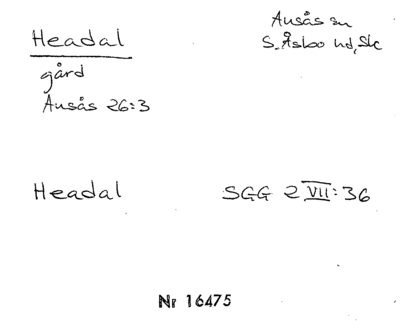 Headal
Ausås sn
S. Åsbo hd, Sk
gård
Ausås 26:3
Headal
SGG 2 VII:36
Nr 16475